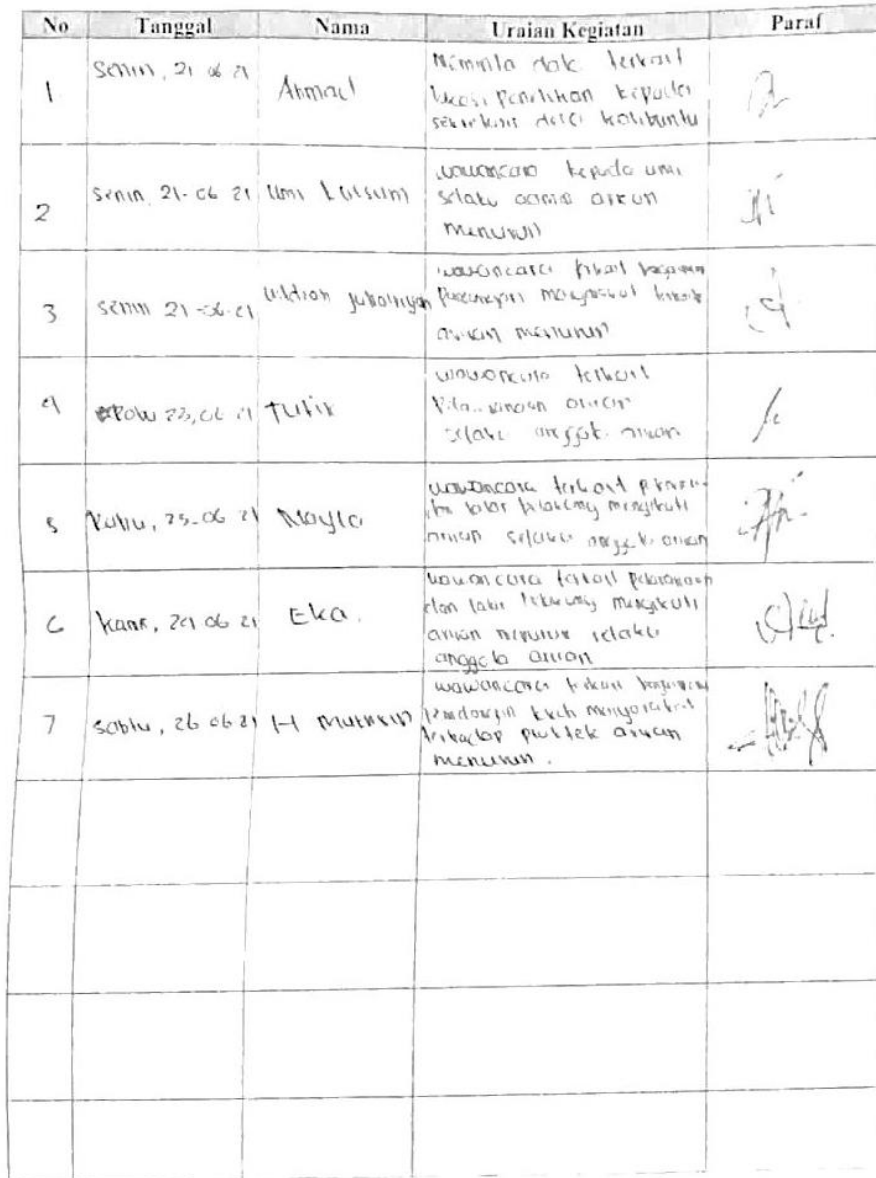 No Tanggal Nama Uraian Kegiatan Paraf
1 Senin, 21 06 21 Ahmad
Meminta data terkait
lokasi Penelitian kepada
sekretaris desa kalibuntu
2 Senin, 21-06 21 Umi Kulsum
wawancara kepada umi
selaku arisan
menurun
3 Senin 21-06-21
wawancara terkait
masyarakat terkait
arisan menurun
4 06 21
wawancara terkait
arisan
selaku anggota arisan
5 Rabu, 23-06 21 Mayla
wawancara terkait
latar belakang mengikuti
arisan selaku anggota arisan
6 Kamis, 24 06 21 Eka.
wawancara terkait pelaksanaan
dan latar belakang mengikuti
arisan menurun selaku
anggota arisan
7 Sabtu, 26 06 21 H
wawancara terkait bagaimana
pandangan masyarakat
terhadap praktek arisan
menurun.